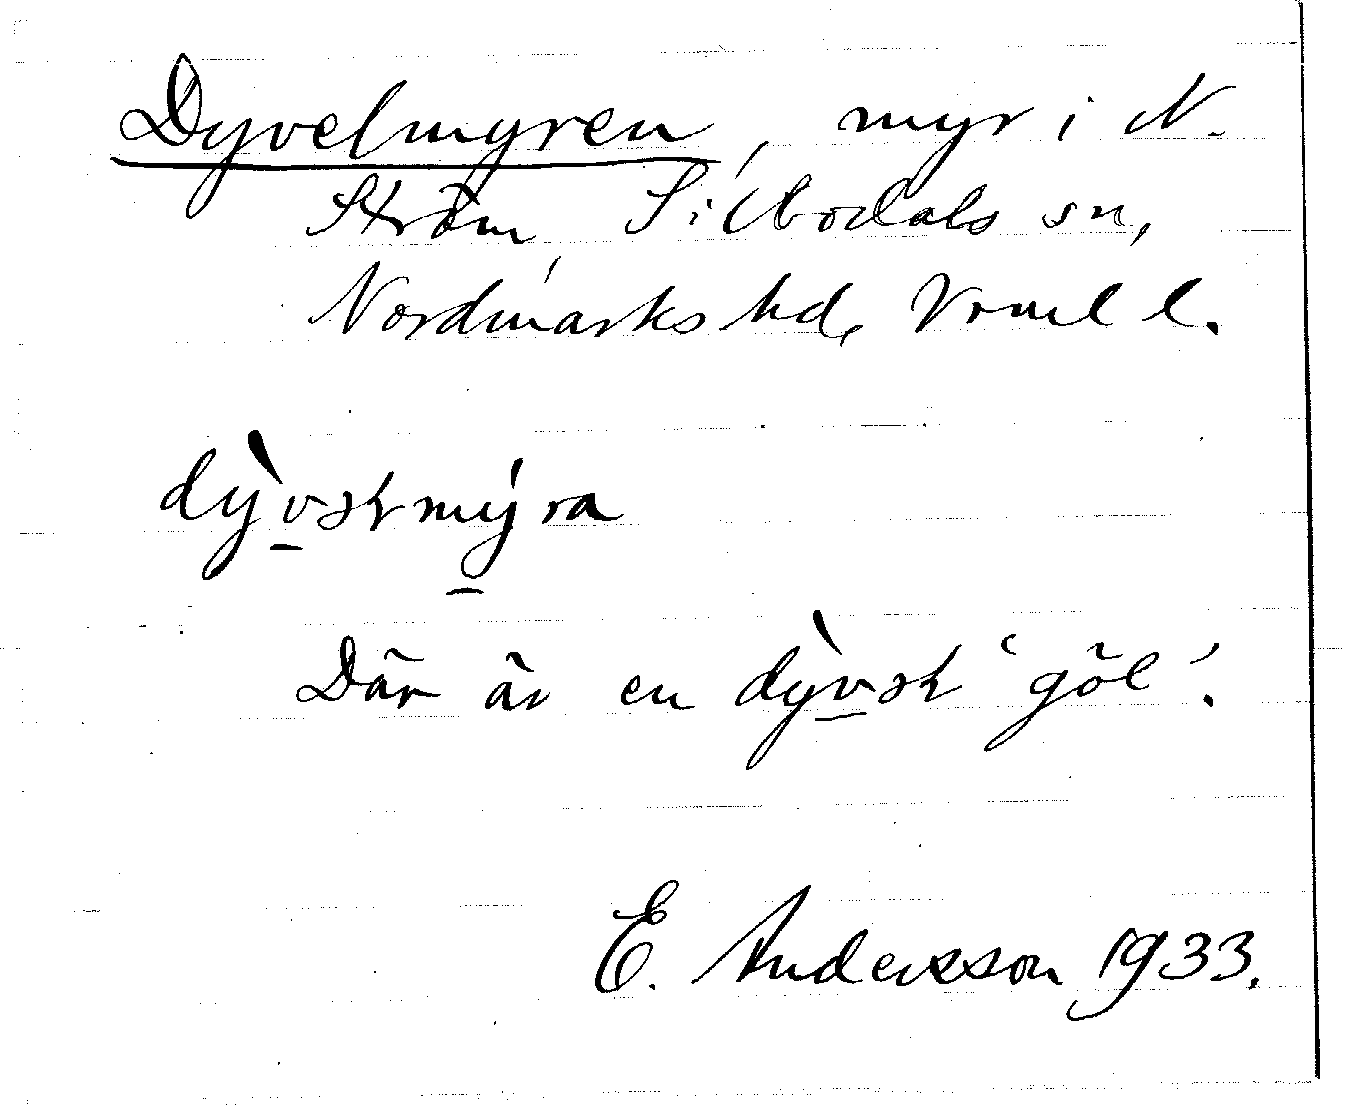 Dyvelmyren, myr i N.
Ström, Silbodals sn,
Nordmarks hd, Vrml l.
dỳ̠vəɫmýra
Där är en dỳvəɫ ‘göl’.
E. Andersson 1933.